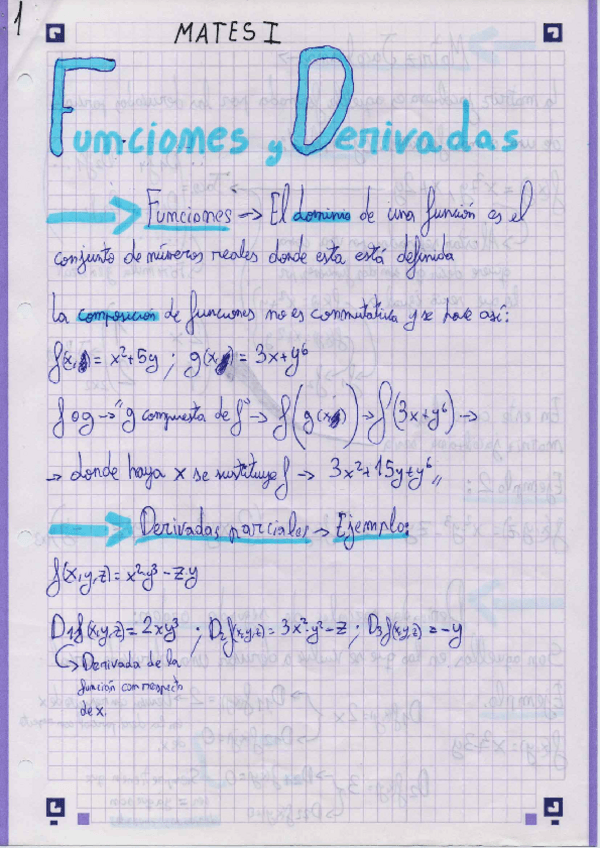 1
MATES I
Funciones y Derivadas
Funciones → El dominio de una función es el
conjunto de números reales donde esta está definida
La composición de funciones no es conmutativa y se hace así:
f(x,y) = x²+5y ; g(x,y) = 3x+y⁶
f o g → "g compuesta de f" → f(g(x,y)) → f(3x+y⁶) →
→ donde haya x se sustituye f → 3x²+15y+y⁶,,
Derivadas parciales → Ejemplo:
f(x,y,z) = x²·y³ - z·y
D₁f(x,y,z) = 2xy³ ; D₂f(x,y,z) = 3x²·y² - z ; D₃f(x,y,z) = -y
Derivada de la
función con respecto
de x.